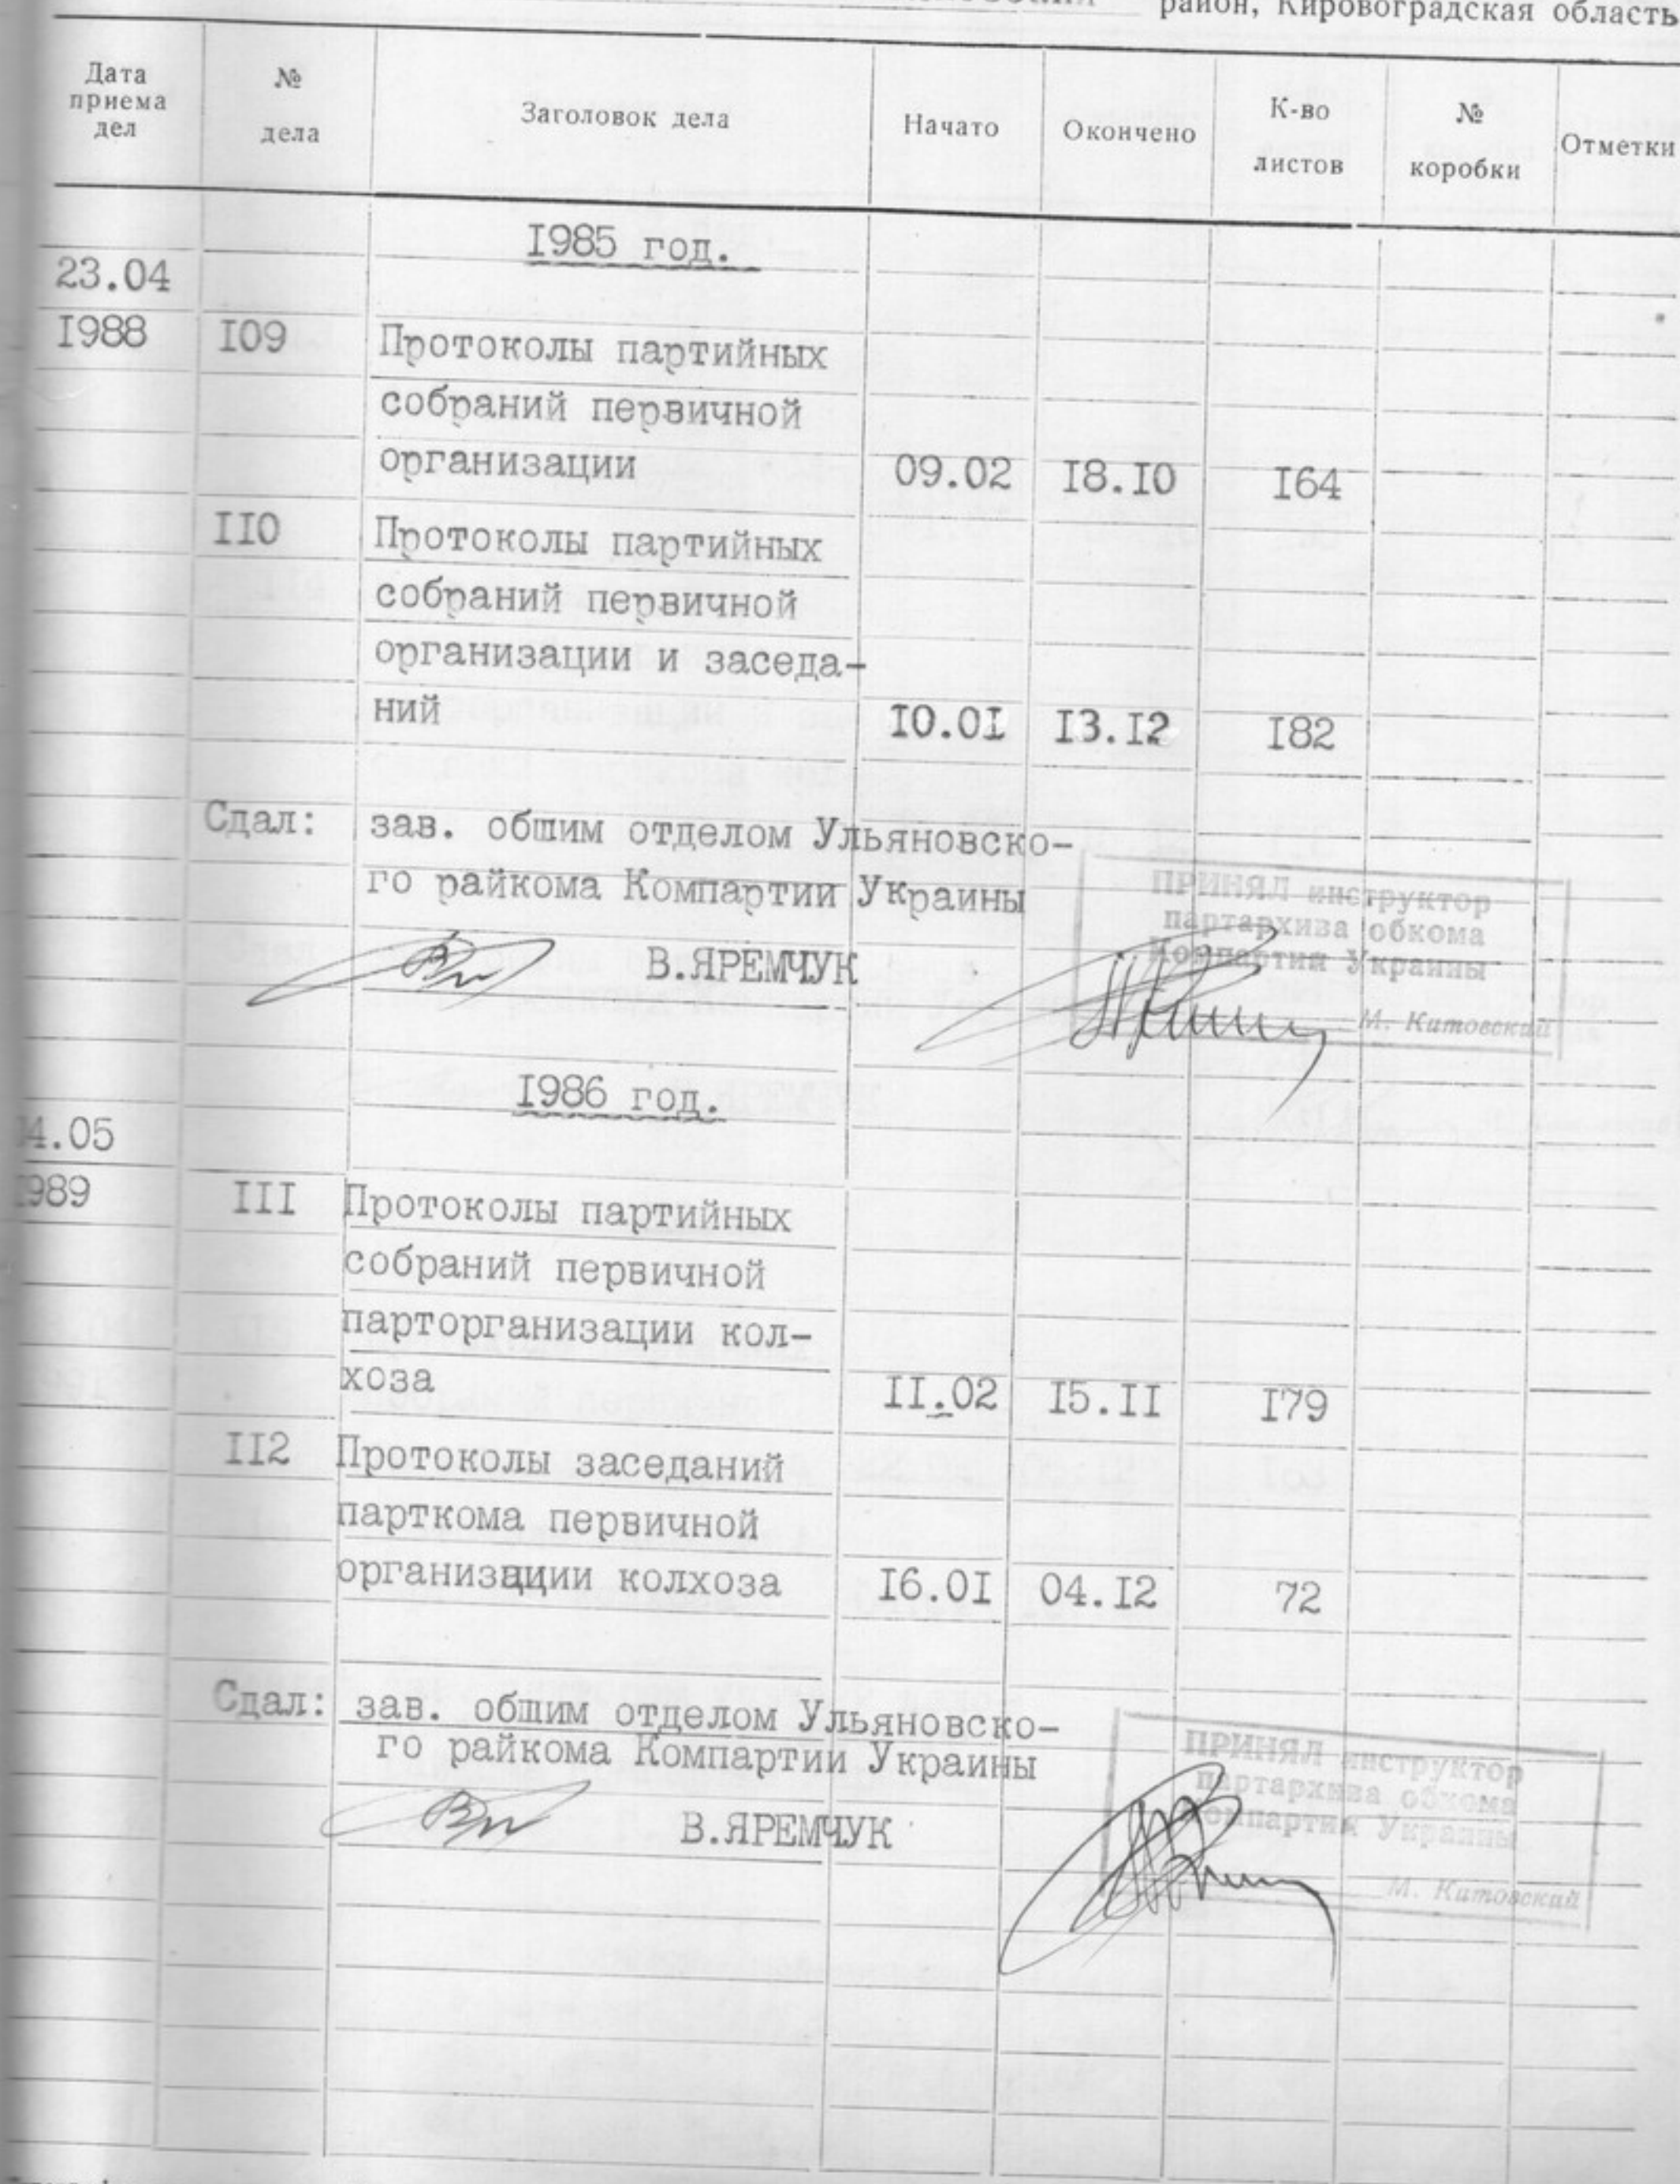 район, Кировоградская область
Дата приема дел
№ дела
Заголовок дела
Начато
Окончено
К-во листов
№ коробки
Отметки
I985 год.
23.04
I988 I09 Протоколы партийных
собраний первичной
организации 09.02 I8.I0 I64
II0 Протоколы партийных
собраний первичной
организации и заседа-
ний I0.0I I3.I2 I82
Сдал: зав. обшим отделом Ульяновско-
го райкома Компартии Украины
В.ЯРЕМЧУК
ПРИНЯЛ инструктор
партархива обкома
Компартии Украины
М. Китовский
I986 год.
4.05
989 III Протоколы партийных
собраний первичной
парторганизации кол-
хоза II.02 I5.II I79
II2 Протоколы заседаний
парткома первичной
организации колхоза I6.0I 04.I2 72
Сдал: зав. обшим отделом Ульяновско-
го райкома Компартии Украины
В.ЯРЕМЧУК
ПРИНЯЛ инструктор
партархива обкома
Компартии Украины
М. Китовский